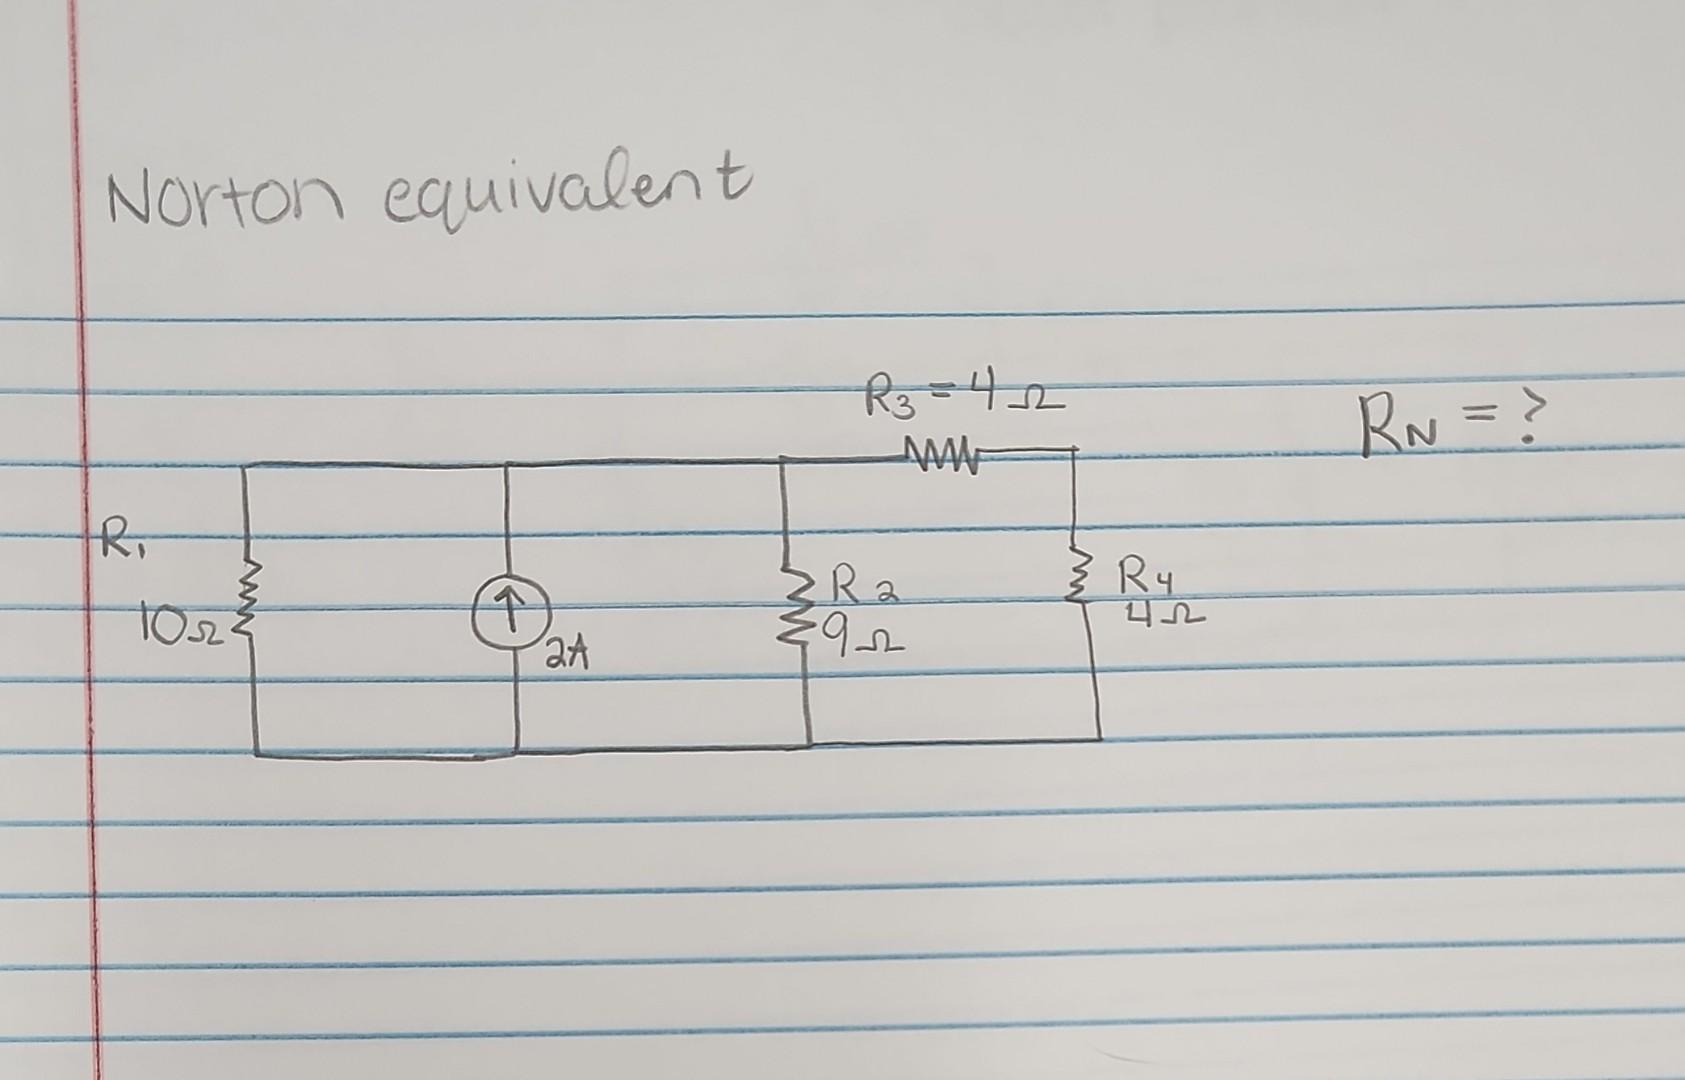 Norton equivalent
R3 = 4Ω
RN = ?
R1
10Ω
2A
R2
9Ω
R4
4Ω